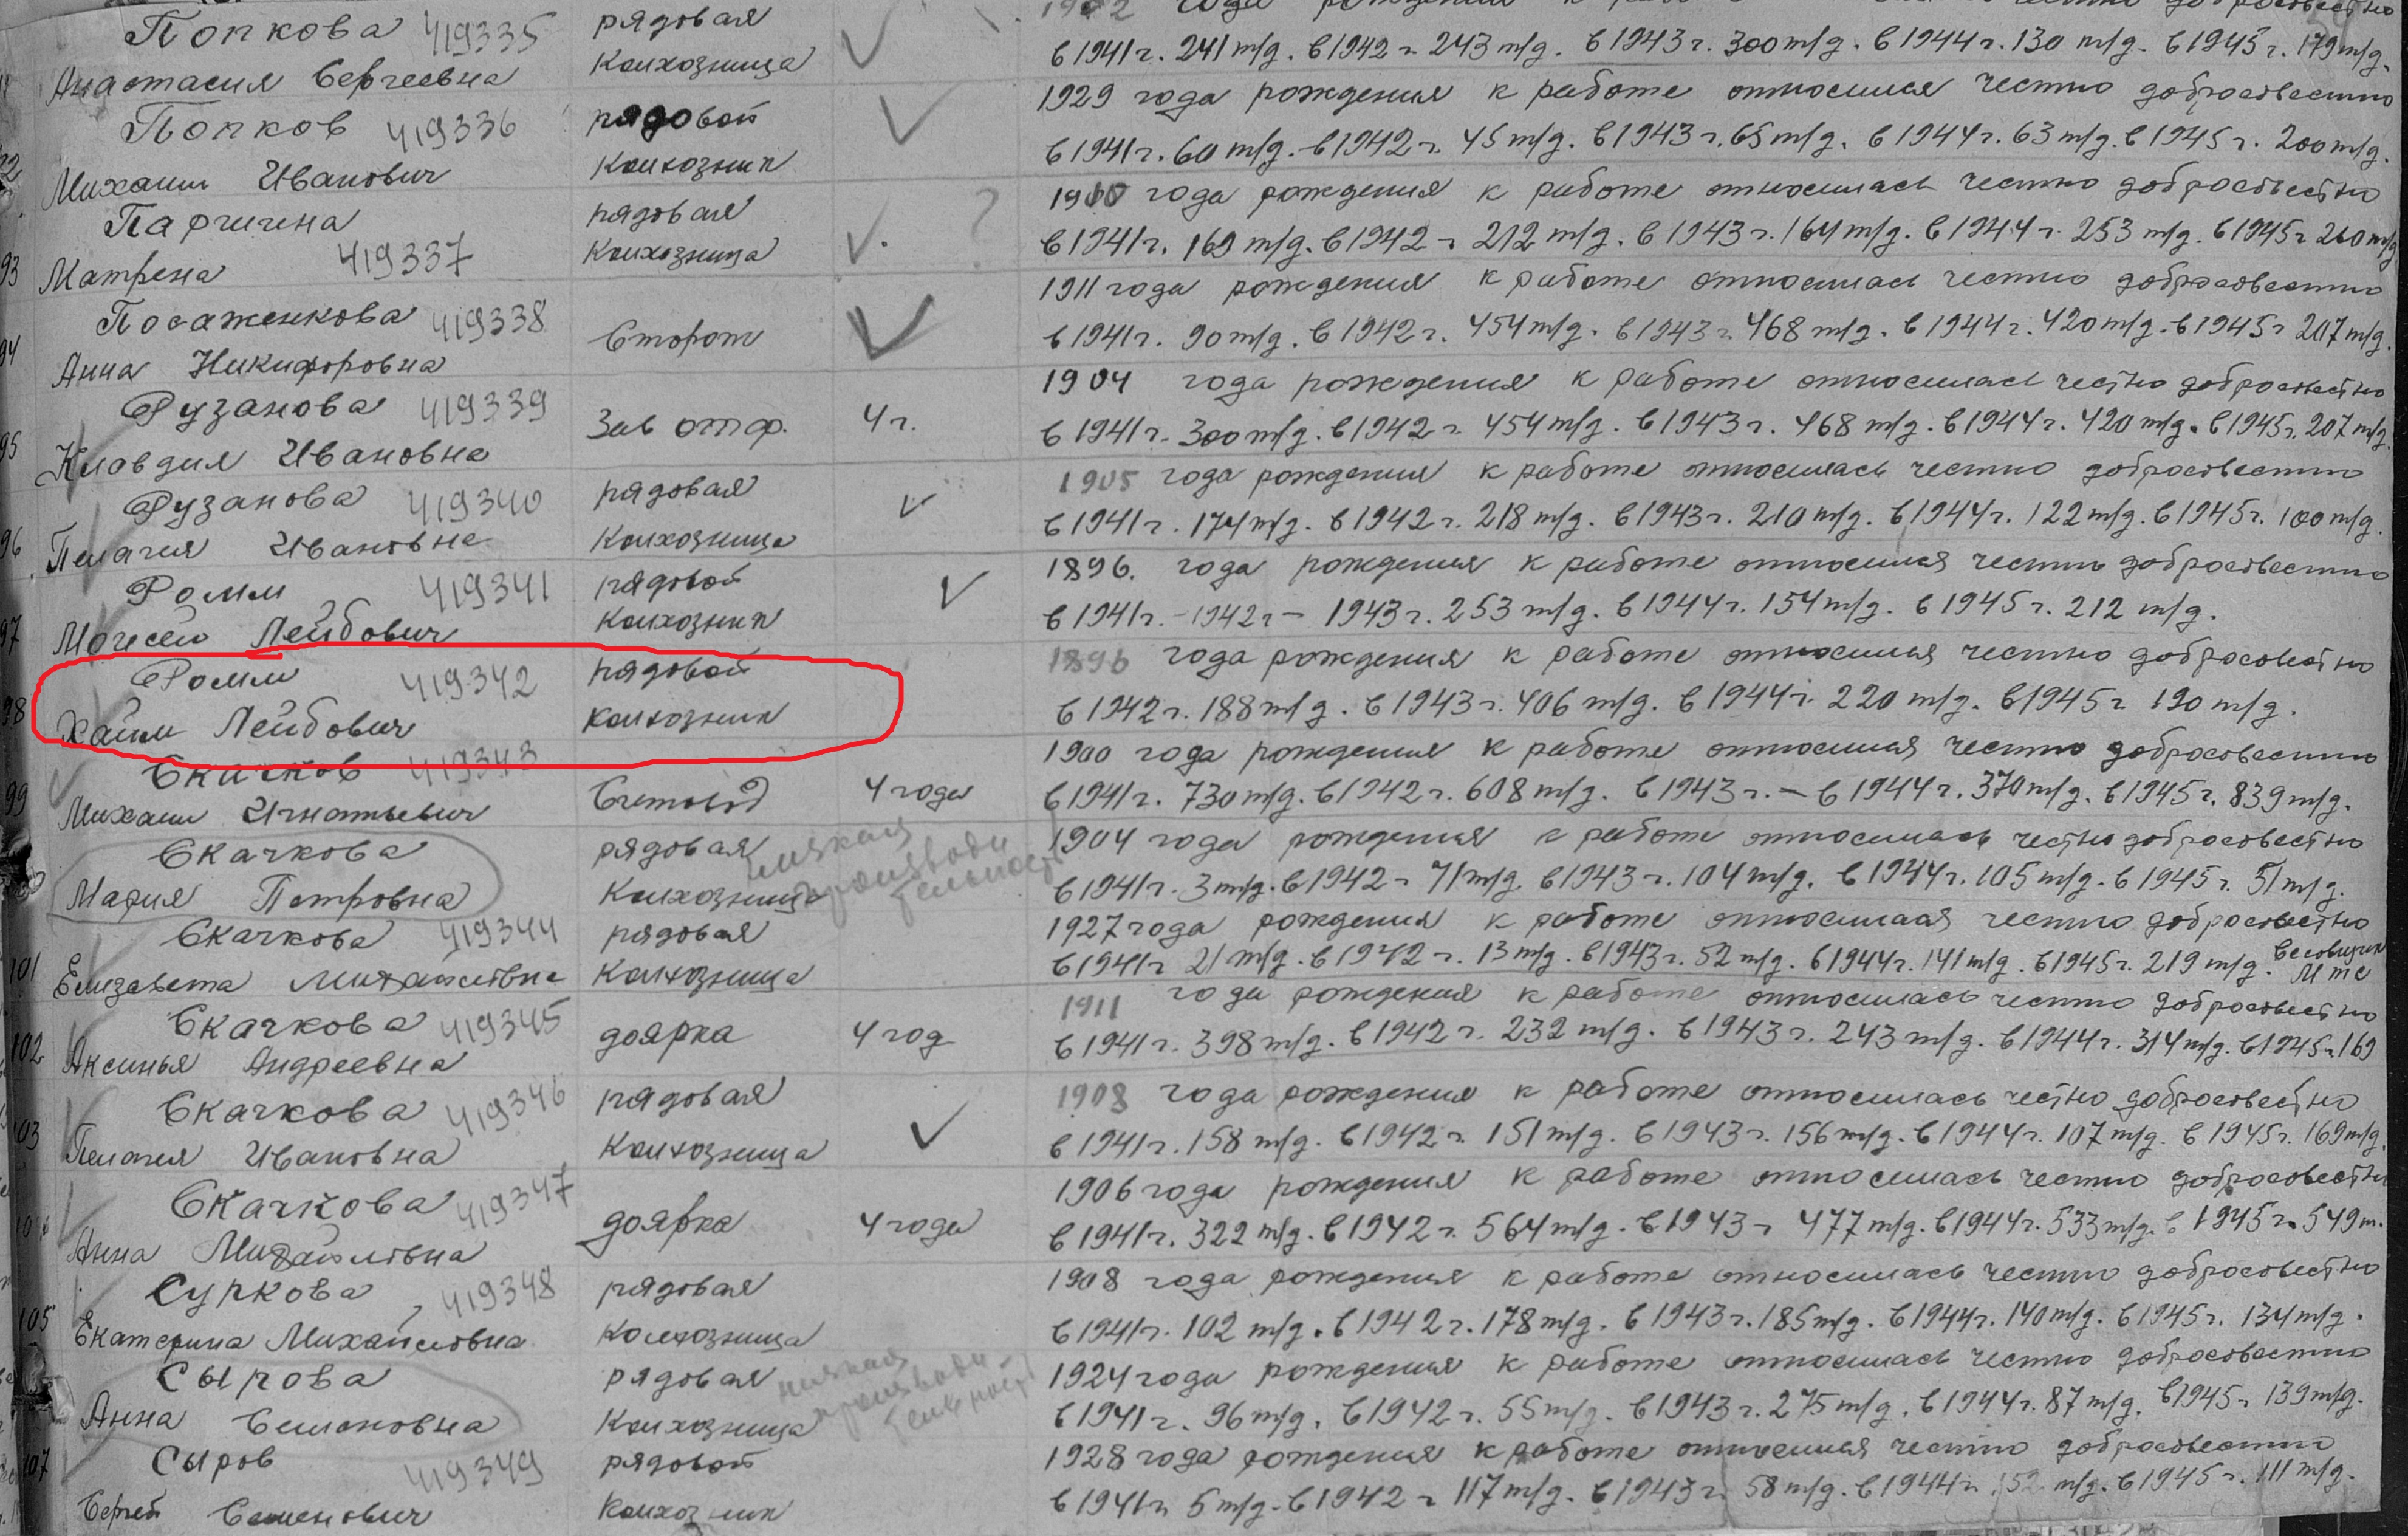 года рождения к работе честно добросовестно
Попкова 419335 рядовая
в 1941 г. 241 т/д. в 1942 г 243 т/д. в 1943 г. 300 т/д. в 1944 г. 130 т/д. в 1945 г. 179 т/д.
Анастасия Сергеевна колхозница
1929 года рождения к работе относился честно добросовестно
Попков 419336 рядовой
в 1941 г. 60 т/д. в 1942 г. 45 т/д. в 1943 г. 65 т/д. в 1944 г. 63 т/д. в 1945 г. 200 т/д.
Михаил Иванович колхозник
года рождения к работе относилась честно добросовестно
Паршина рядовая ?
в 1941 г. 169 т/д. в 1942 г 212 т/д. в 1943 г. 164 т/д. в 1944 г. 253 т/д. в 1945 г 260 т/д
93 Матрена 419337 колхозница
1911 года рождения к работе относилась честно добросовестно
Посаженкова 419338 Сторож
в 1941 г. 90 т/д. в 1942 г. 454 т/д. в 1943 г 468 т/д. в 1944 г. 420 т/д. в 1945 г 207 т/д.
94 Анна Никифоровна
1904 года рождения к работе относилась честно добросовестно
Рузанова 419339 Зав отф. 4 г.
в 1941 г. 300 т/д. в 1942 г. 454 т/д. в 1943 г. 468 т/д. в 1944 г. 420 т/д. в 1945 г. 207 т/д.
95 Клавдия Ивановна
1905 года рождения к работе относилась честно добросовестно
Рузанова 419340 рядовая
в 1941 г. 174 т/д. в 1942 г. 218 т/д. в 1943 г. 210 т/д. в 1944 г. 122 т/д. в 1945 г. 100 т/д.
96 Пелагия Ивановна колхозница
1896. года рождения к работе относился честно добросовестно
Ромм 419341 рядовой
в 1941 г. - 1942 г - 1943 г. 253 т/д. в 1944 г. 154 т/д. в 1945 г. 212 т/д.
97 Моисей Лейбович колхозник
1896 года рождения к работе относился честно добросовестно
Ромм 419342 рядовой
в 1942 г. 188 т/д. в 1943 г. 406 т/д. в 1944 г. 220 т/д. в 1945 г 190 т/д.
98 Хаим Лейбович колхозник
1900 года рождения к работе относился честно добросовестно
Скачков 419343 Счетовод 4 года
в 1941 г. 730 т/д. в 1942 г. 608 т/д. в 1943 г. — в 1944 г. 370 т/д. в 1945 г. 839 т/д.
99 Михаил Игнатьевич
1904 года рождения к работе относилась честно добросовестно
Скачкова рядовая низкая производительность
в 1941 г. 3 т/д. в 1942 г 71 т/д. в 1943 г. 104 т/д. в 1944 г. 105 т/д. в 1945 г. 51 т/д.
Мария Петровна колхозница
1927 года рождения к работе относилась честно добросовестно
Скачкова 419344 рядовая
в 1941 г 21 т/д. в 1942 г. 13 т/д. в 1943 г. 52 т/д. в 1944 г. 141 т/д. в 1945 г. 219 т/д.
101 Елизавета Михайловна колхозница
1911 года рождения к работе относилась честно добросовестно
Скачкова 419345 доярка 4 год
в 1941 г. 398 т/д. в 1942 г. 232 т/д. в 1943 г. 243 т/д. в 1944 г. 314 т/д. в 1945 г. 169
102 Аксинья Андреевна
1908 года рождения к работе относилась честно добросовестно
Скачкова 419346 рядовая
в 1941 г. 158 т/д. в 1942 г. 151 т/д. в 1943 г. 156 т/д. в 1944 г. 107 т/д. в 1945 г. 169 т/д.
103 Пелагия Ивановна колхозница
1906 года рождения к работе относилась честно добросовестно
Скачкова 419347 доярка 4 года
в 1941 г. 322 т/д. в 1942 г. 564 т/д. в 1943 г 477 т/д. в 1944 г. 533 т/д. в 1945 г. 549 т.
Анна Михайловна
1908 года рождения к работе относилась честно добросовестно
Суркова 419348 рядовая
в 1941 г. 102 т/д. в 1942 г. 178 т/д. в 1943 г. 185 т/д. в 1944 г. 140 т/д. в 1945 г. 134 т/д.
105 Екатерина Михайловна колхозница
1924 года рождения к работе относилась честно добросовестно
Сырова рядовая низкая производительность
в 1941 г. 96 т/д. в 1942 г. 55 т/д. в 1943 г. 275 т/д. в 1944 г. 87 т/д. в 1945 г. 139 т/д.
Анна Семеновна колхозница
1928 года рождения к работе относился честно добросовестно
107 Сыров 419349 рядовой
в 1941 г. 5 т/д. в 1942 г 117 т/д. в 1943 г. 58 т/д. в 1944 г. 52 т/д. в 1945 г. 111 т/д.
Сергей Семенович колхозник